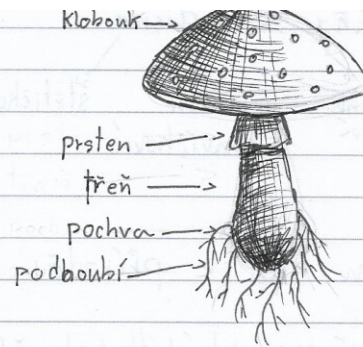 klobouk
prsten
třeň
pochva
podhoubí